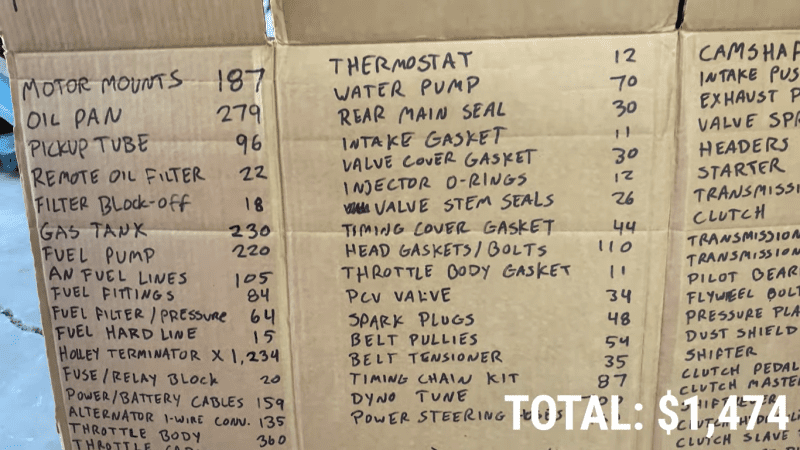 MOTOR MOUNTS 187
OIL PAN 279
PICKUP TUBE 96
REMOTE OIL FILTER 22
FILTER BLOCK-OFF 18
GAS TANK 230
FUEL PUMP 220
AN FUEL LINES 105
FUEL FITTINGS 84
FUEL FILTER/PRESSURE 64
FUEL HARD LINE 15
HOLLEY TERMINATOR X 1,234
FUSE/RELAY BLOCK 20
POWER/BATTERY CABLES 159
ALTERNATOR 1-WIRE CONV. 135
THROTTLE BODY 360
THROTTLE
THERMOSTAT 12
WATER PUMP 70
REAR MAIN SEAL 30
INTAKE GASKET 11
VALVE COVER GASKET 30
INJECTOR O-RINGS 12
VALVE STEM SEALS 26
TIMING COVER GASKET 44
HEAD GASKETS/BOLTS 110
THROTTLE BODY GASKET 11
PCV VALVE 34
SPARK PLUGS 48
BELT PULLIES 54
BELT TENSIONER 35
TIMING CHAIN KIT 87
DYNO TUNE
POWER STEERING
CAMSHAF
INTAKE PUS
EXHAUST P
VALVE SPR
HEADERS
STARTER
TRANSMISSI
CLUTCH
TRANSMISSION
TRANSMISSION
PILOT BEAR
FLYWHEEL BOLT
PRESSURE PLA
DUST SHIELD
SHIFTER
CLUTCH PEDAL
CLUTCH MASTE
CLUTCH SLAVE
TOTAL: $1,474